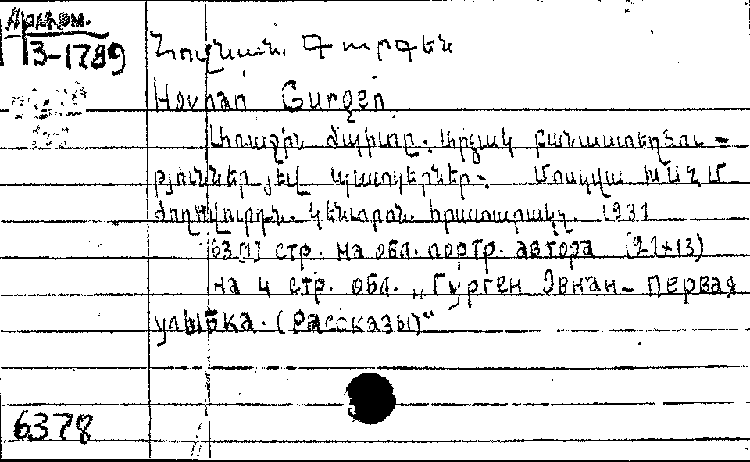 Армян.
3-1789
Հովնան. Գուրգեն
Hovnan Gurgen
Առաջին ժպիտը. Արձակ բանաստեղծու-
թյուններ յեվ պատկերներ. Մոսկվա ԽՍՀՄ
ժողովուրդն. կենտրոն. հրատարակչ. 1931
63 [1] стр. на обл. портр. автора (21×13)
на 4 стр. обл. „Гурген Овнан- первая
улыбка. (Рассказы)"
6378